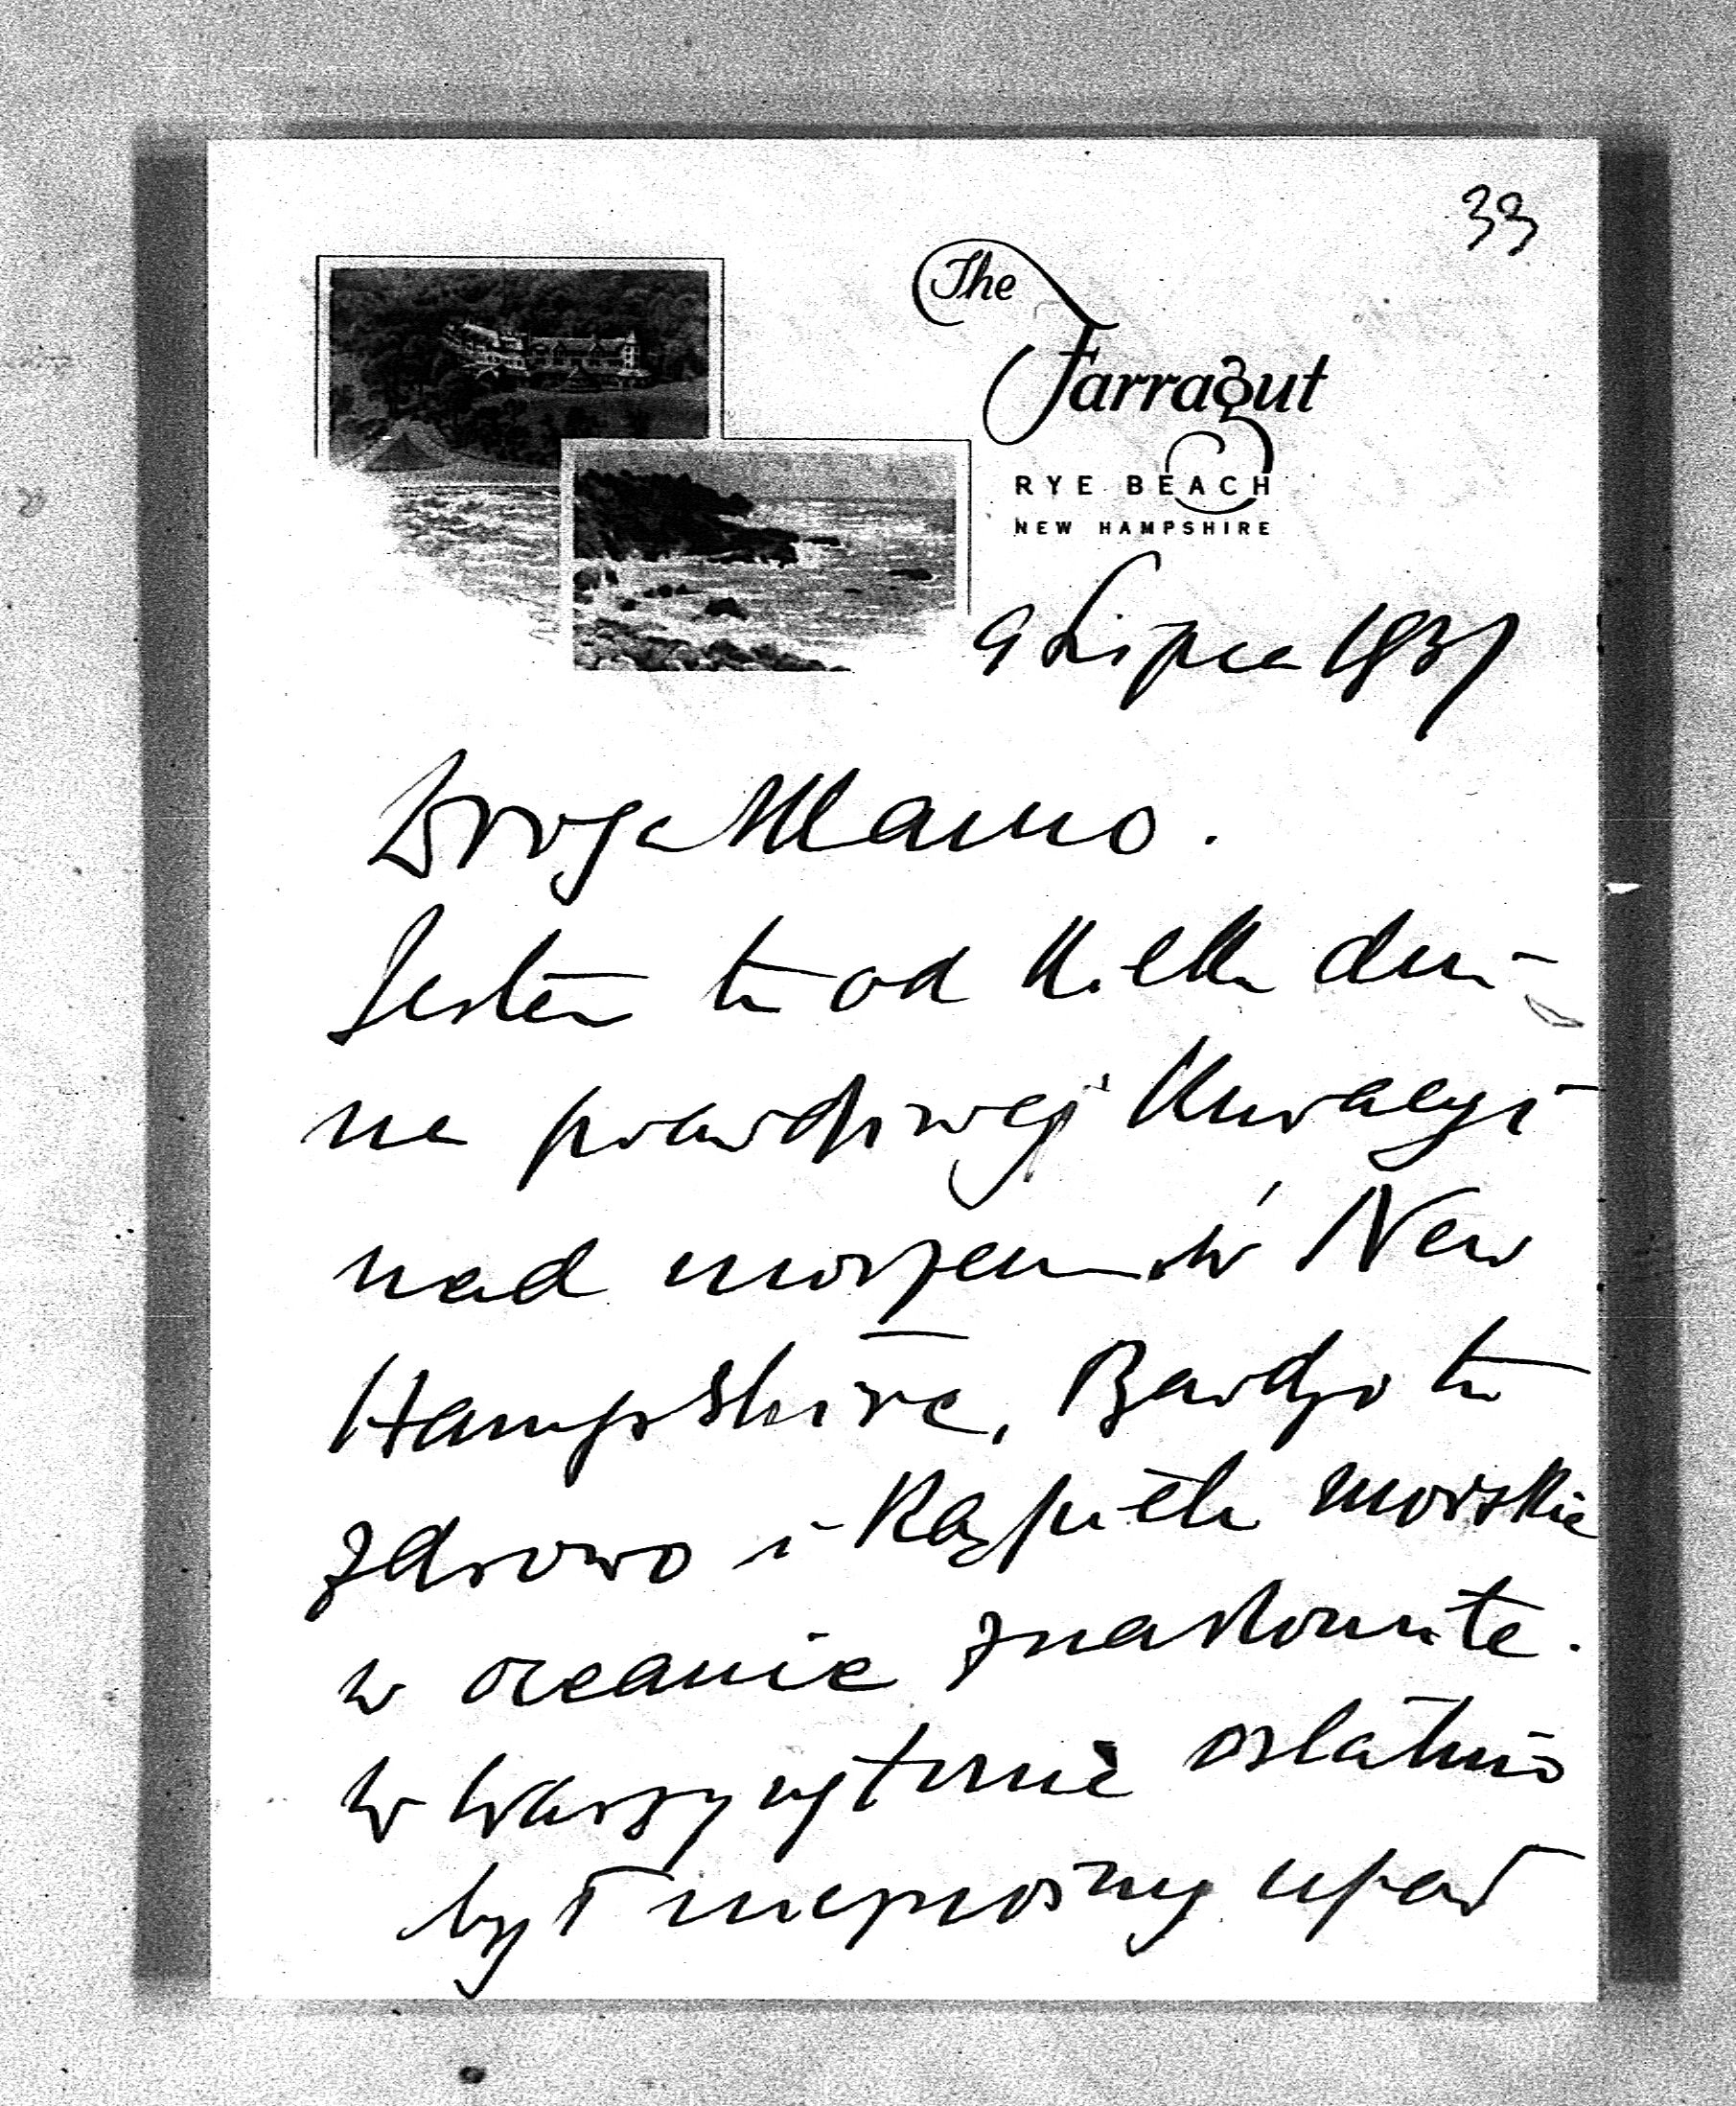 33
The
Farragut
RYE BEACH
NEW HAMPSHIRE
9 Lipca 1937
Droga Mamo.
Jestem tu od kilku dni
na prawdziwej kuracyi
nad morzem w New
Hampshire, Bardzo tu
zdrowo i kąpiele morskie
w oceanie znakomite.
w Waszyngtonie ostatnio
był nieznośny upał